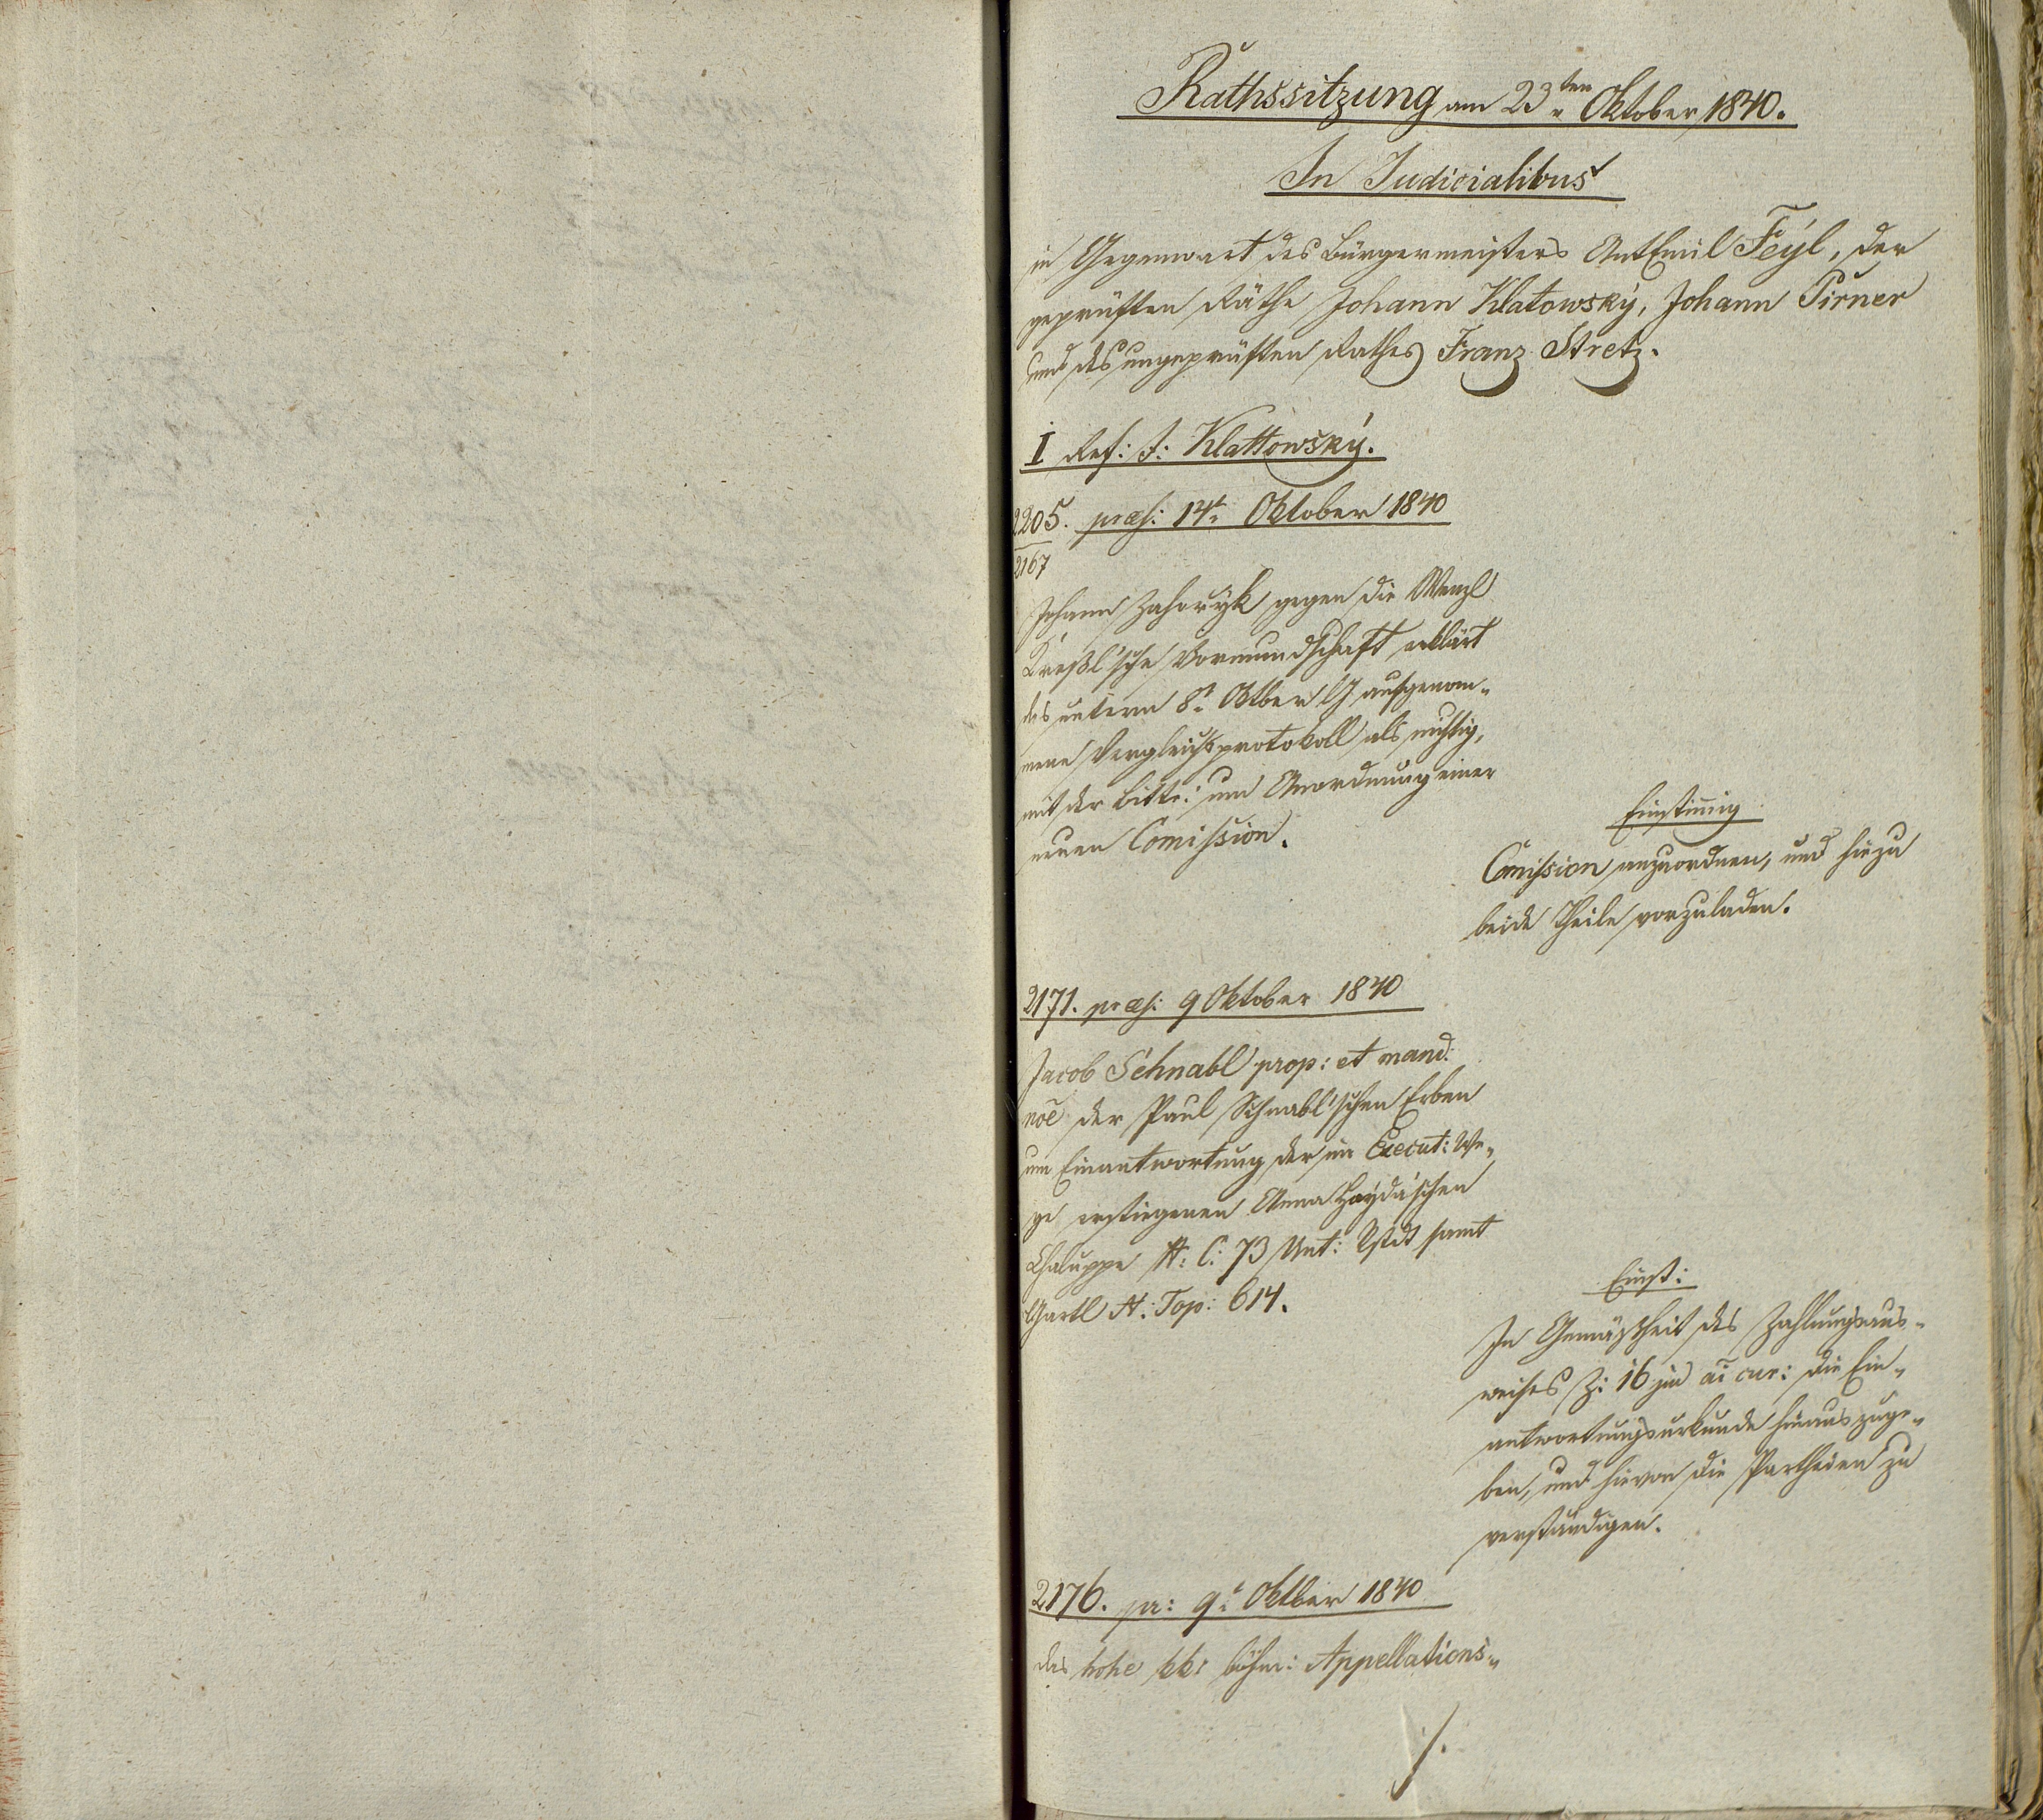 Rathssitzung am 23ten Oktober 1840.
In Judicialibus
in Gegenwart des Bürgermeisters Ant Emil Feyl, der
geprüften Räthe Johann Klatowský, Johann Pirner
und des ungeprüften Rathes Franz Stretz.
I Ref: J: Klattowský.
2205. præs: 14t Oktober 1840
2167
Johann Zahorýk gegen die Wenzl
Kreßl'sche Vormundschaft erklärt
das unterm 8t Oktber l J aufgenom-
mene Vergleichsprotokoll als nichtig,
mit der Bitte: um Anordnung einer
neuen Comission.
Einstimig
Comission anzuordnen, und hiezu
beide Theile vorzuladen.
2171. præs: 9 Oktober 1840
Jacob Schnabl prop: et mand:
noe der Paul Schnabl'schen Erben
um Einantwortung der im Execut: We-
ge erstiegenen Anna Hayda'schen
Chaluppe N: C: 73 Unt: Vstdt samt
Gartl N: Top: 614.
Einst:
In Gemäßheit des Zahlungsaus-
weises Z: 16 ai cur: die Ein-
antwortungsurkunde hinauszuge-
ben, und hievon die Partheien zu
verständigen.
2176. pr: 9t Oktber 1840
das hohe kk: böhm: Appellations-
./.